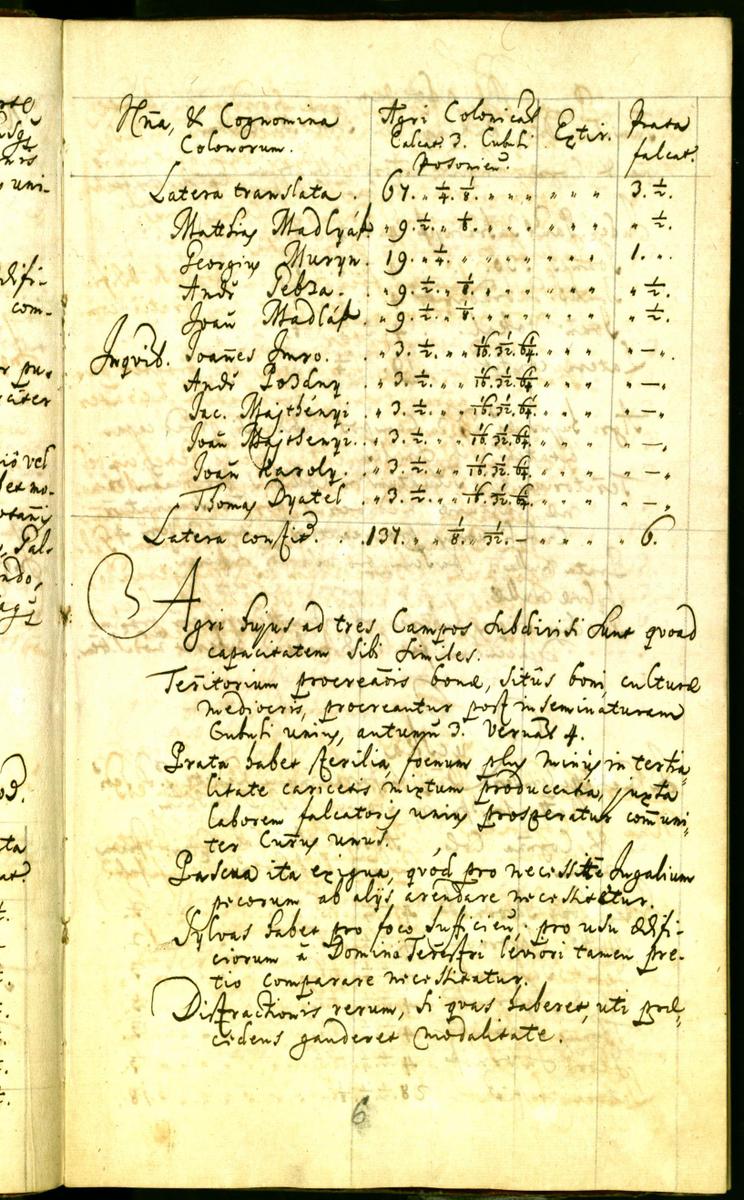 Nna, & Cognomina Colonorum.
Agri Colonicales Calcat. 3. Cubuli Posonien.
Extir.
Prata falcat.
Latera translata . 67. „ ¼. ⅛. „ „ „ „ „ „ 3. ½.
Matthias Madlyák „ 9. ½. „ ⅛. „ „ „ „ „ „ ½.
Georgius Muryn. 19. „ ¼. „ „ „ „ „ „ 1. „.
Andr̃ Pebza. „ 9. ½. „ ⅛. „ „ „ „ „ „ ½.
Joañ Madlák. „ 9. ½. „ ⅛. „ „ „ „ „ „ ½.
Inqvil. Joañes Imro. . „ 3. ½. „ „ 1/16. 1/32. 1/64. „ „ „ „ —.
Andr̃ Pozdny . „ 3. ½. „ „ 1/16. 1/32. 1/64. „ „ „ „ —.
Jac. Majthényi . „ 3. ½. „ „ 1/16. 1/32. 1/64. „ „ „ „ —.
Joañ Majthenyi . „ 3. ½. „ „ 1/16. 1/32. 1/64. „ „ „ „ —.
Joañ Karoly . „ 3. ½. „ „ 1/16. 1/32. 1/64. „ „ „ „ —.
Thomas Dyatel . „ 3. ½. „ „ 1/16. 1/32. 1/64. „ „ „ „ —.
Latera . . 137. „ „ ⅛. „ 1/32. — „ „ „ „ 6.
Agri hujus ad tres Campos subdivisi sunt qvoad
capacitatem sibi similes.
Territorium procreaõis bonæ, sitûs boni, culturæ
mediocris, procreantur post inseminaturam
Cubuli unius, autumñ 3. Vernas 4.
Prata habet fertilia, foenum plus minus in tertia-
litate caricetis mixtum producentia, juxta
laborem falcatoris unius prosperatur com̃uni-
ter Currus unus.
Pascua ita exigua, qvód pro necessitate Jugalium
pecorum ab alijs arendare necessitetur.
Sylvas habet pro foco sufficien., pro usu ædifi-
ciorum à Domino Terrestri leviori tamen pre-
tio comparare necessitatur.
Distractionis rerum, si qvas haberet, uti præ-
cedens gauderet modalitate.
6